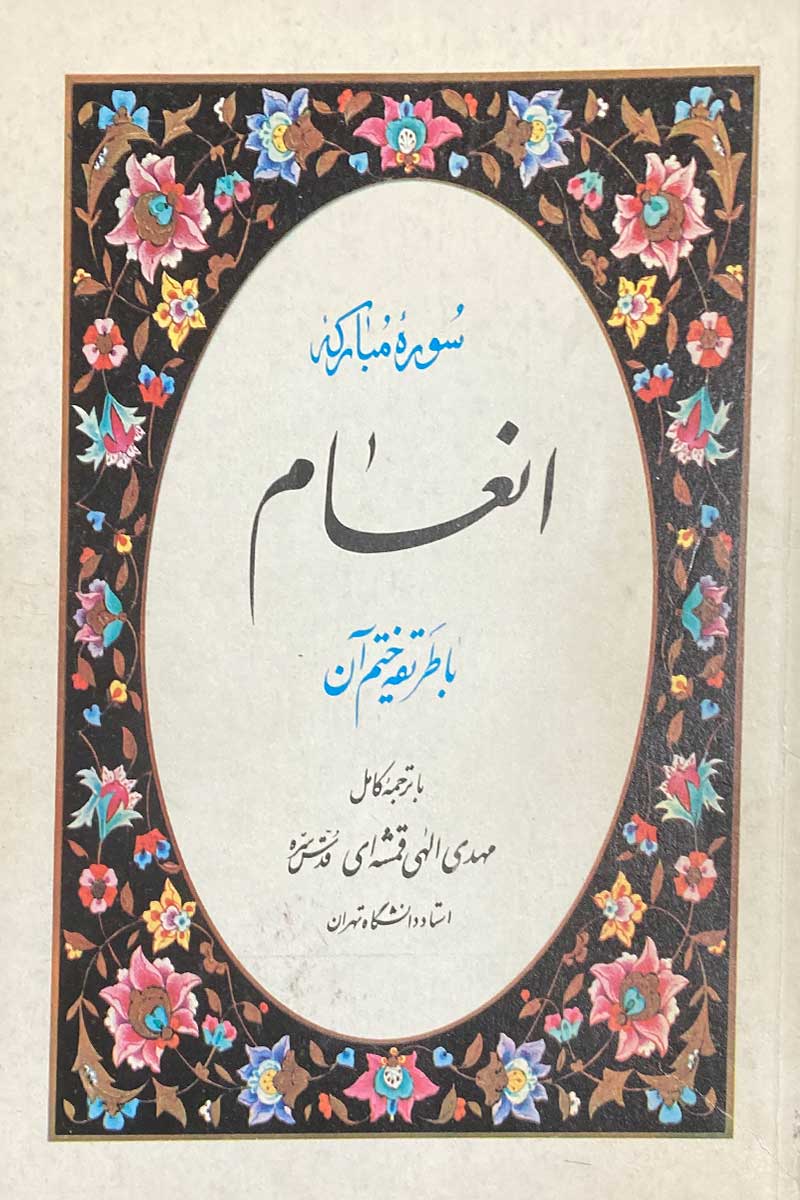 سُورهٔ مُبارکه
انعام
با طَریقه ختم آن
با ترجمهٔ کامل
مهدی الهی قمشه‌ای قدّس سرّه
استاد دانشگاه تهران